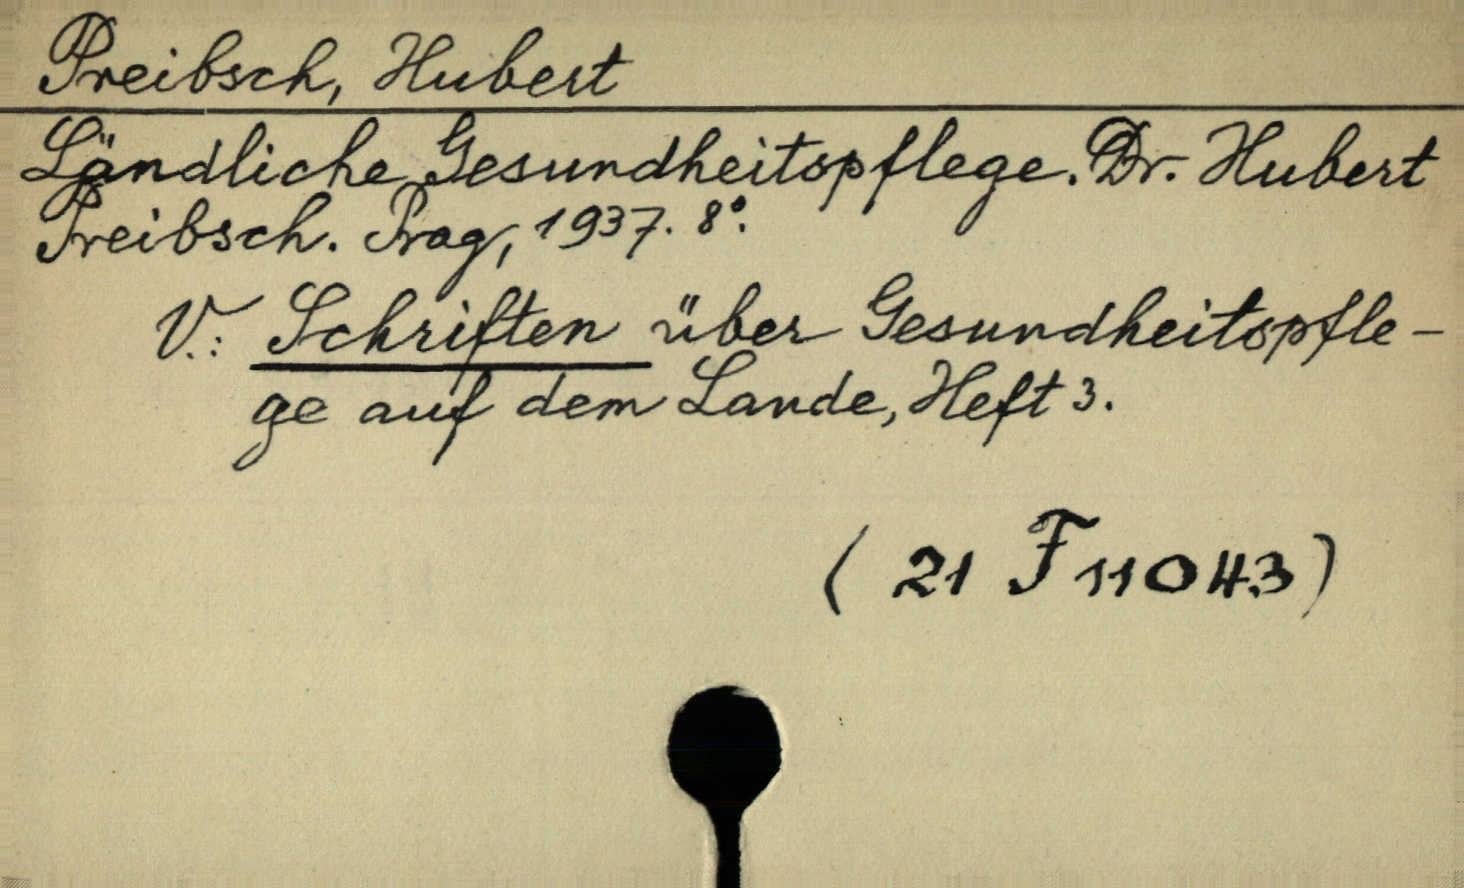 Preibsch, Hubert
Ländliche Gesundheitspflege. Dr. Hubert
Preibsch. Prag, 1937. 8°.
V.: Schriften über Gesundheitspfle-
ge auf dem Lande, Heft 3.
( 21 F 11043)